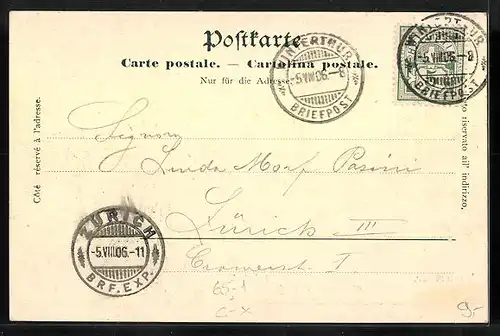 Postkarte.
Carte postale. — Cartolina postale.
Nur für die Adresse.
WINTERTHUR
-5.VIII.06.-8
BRIEFPOST
WINTERTHUR
-5.VIII.06.-8
BRIEFPOST
Côté réservé à l'adresse.
riservato all' indirizzo.
Signora
Linda Morf Pasini
Zürich III
ZÜRICH
-5.VIII.06.-11
BRF. EXP.
65-1
c-x
9.-